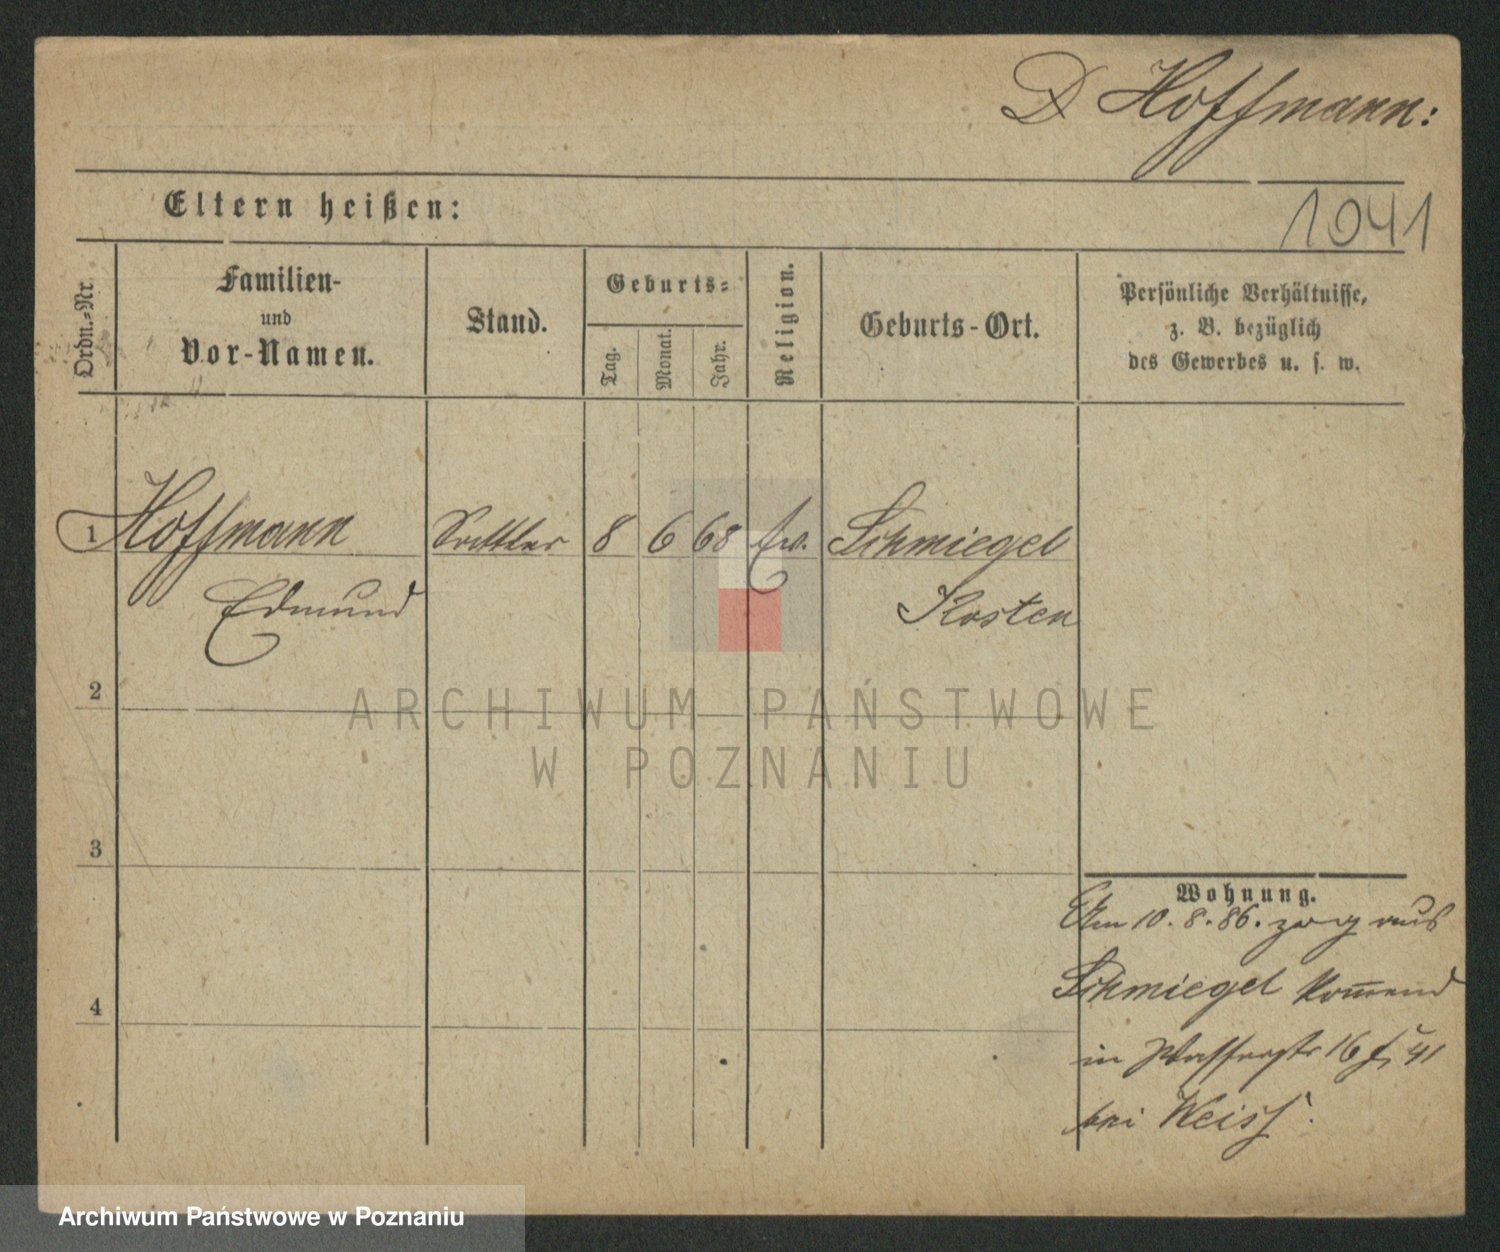 D Hoffmann:
Eltern heißen:
1041
Ordn.-Nr.
Familien-
und
Vor-Namen.
Stand.
Geburts-
Tag.
Monat.
Jahr.
Religion.
Geburts-Ort.
Persönliche Verhältnisse,
z. B. bezüglich
des Gewerbes u. s. w.
1 Hoffmann Sattler 8 6 68 ev. Schmiegel
Edmund Kosten
2
3
4
Wohnung.
Am 10.8.86. zog aus
Schmiegel kom̅end
in Wasserstr 16 41
bei Weiss.
ARCHIWUM PAŃSTWOWE
W POZNANIU
Archiwum Państwowe w Poznaniu